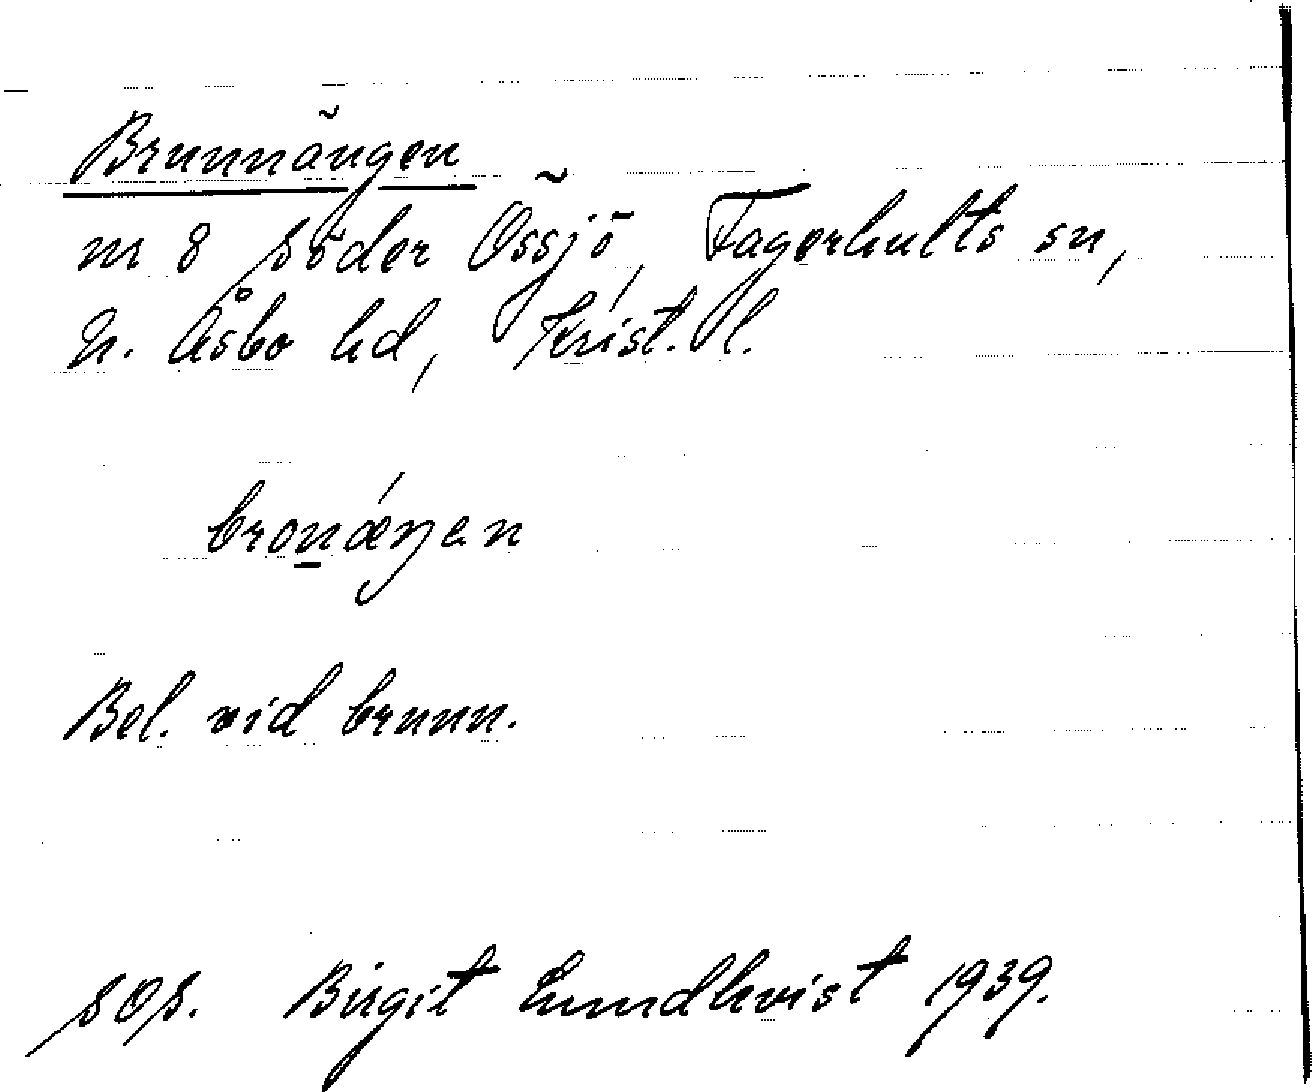 Brunnängen
nr 8 Söder Össjö, Fagerhults sn,
N. Åsbo hd, Krist. l.
bronǽŋen
Bel. vid brunn.
SOS. Birgit Lundkvist 1939.